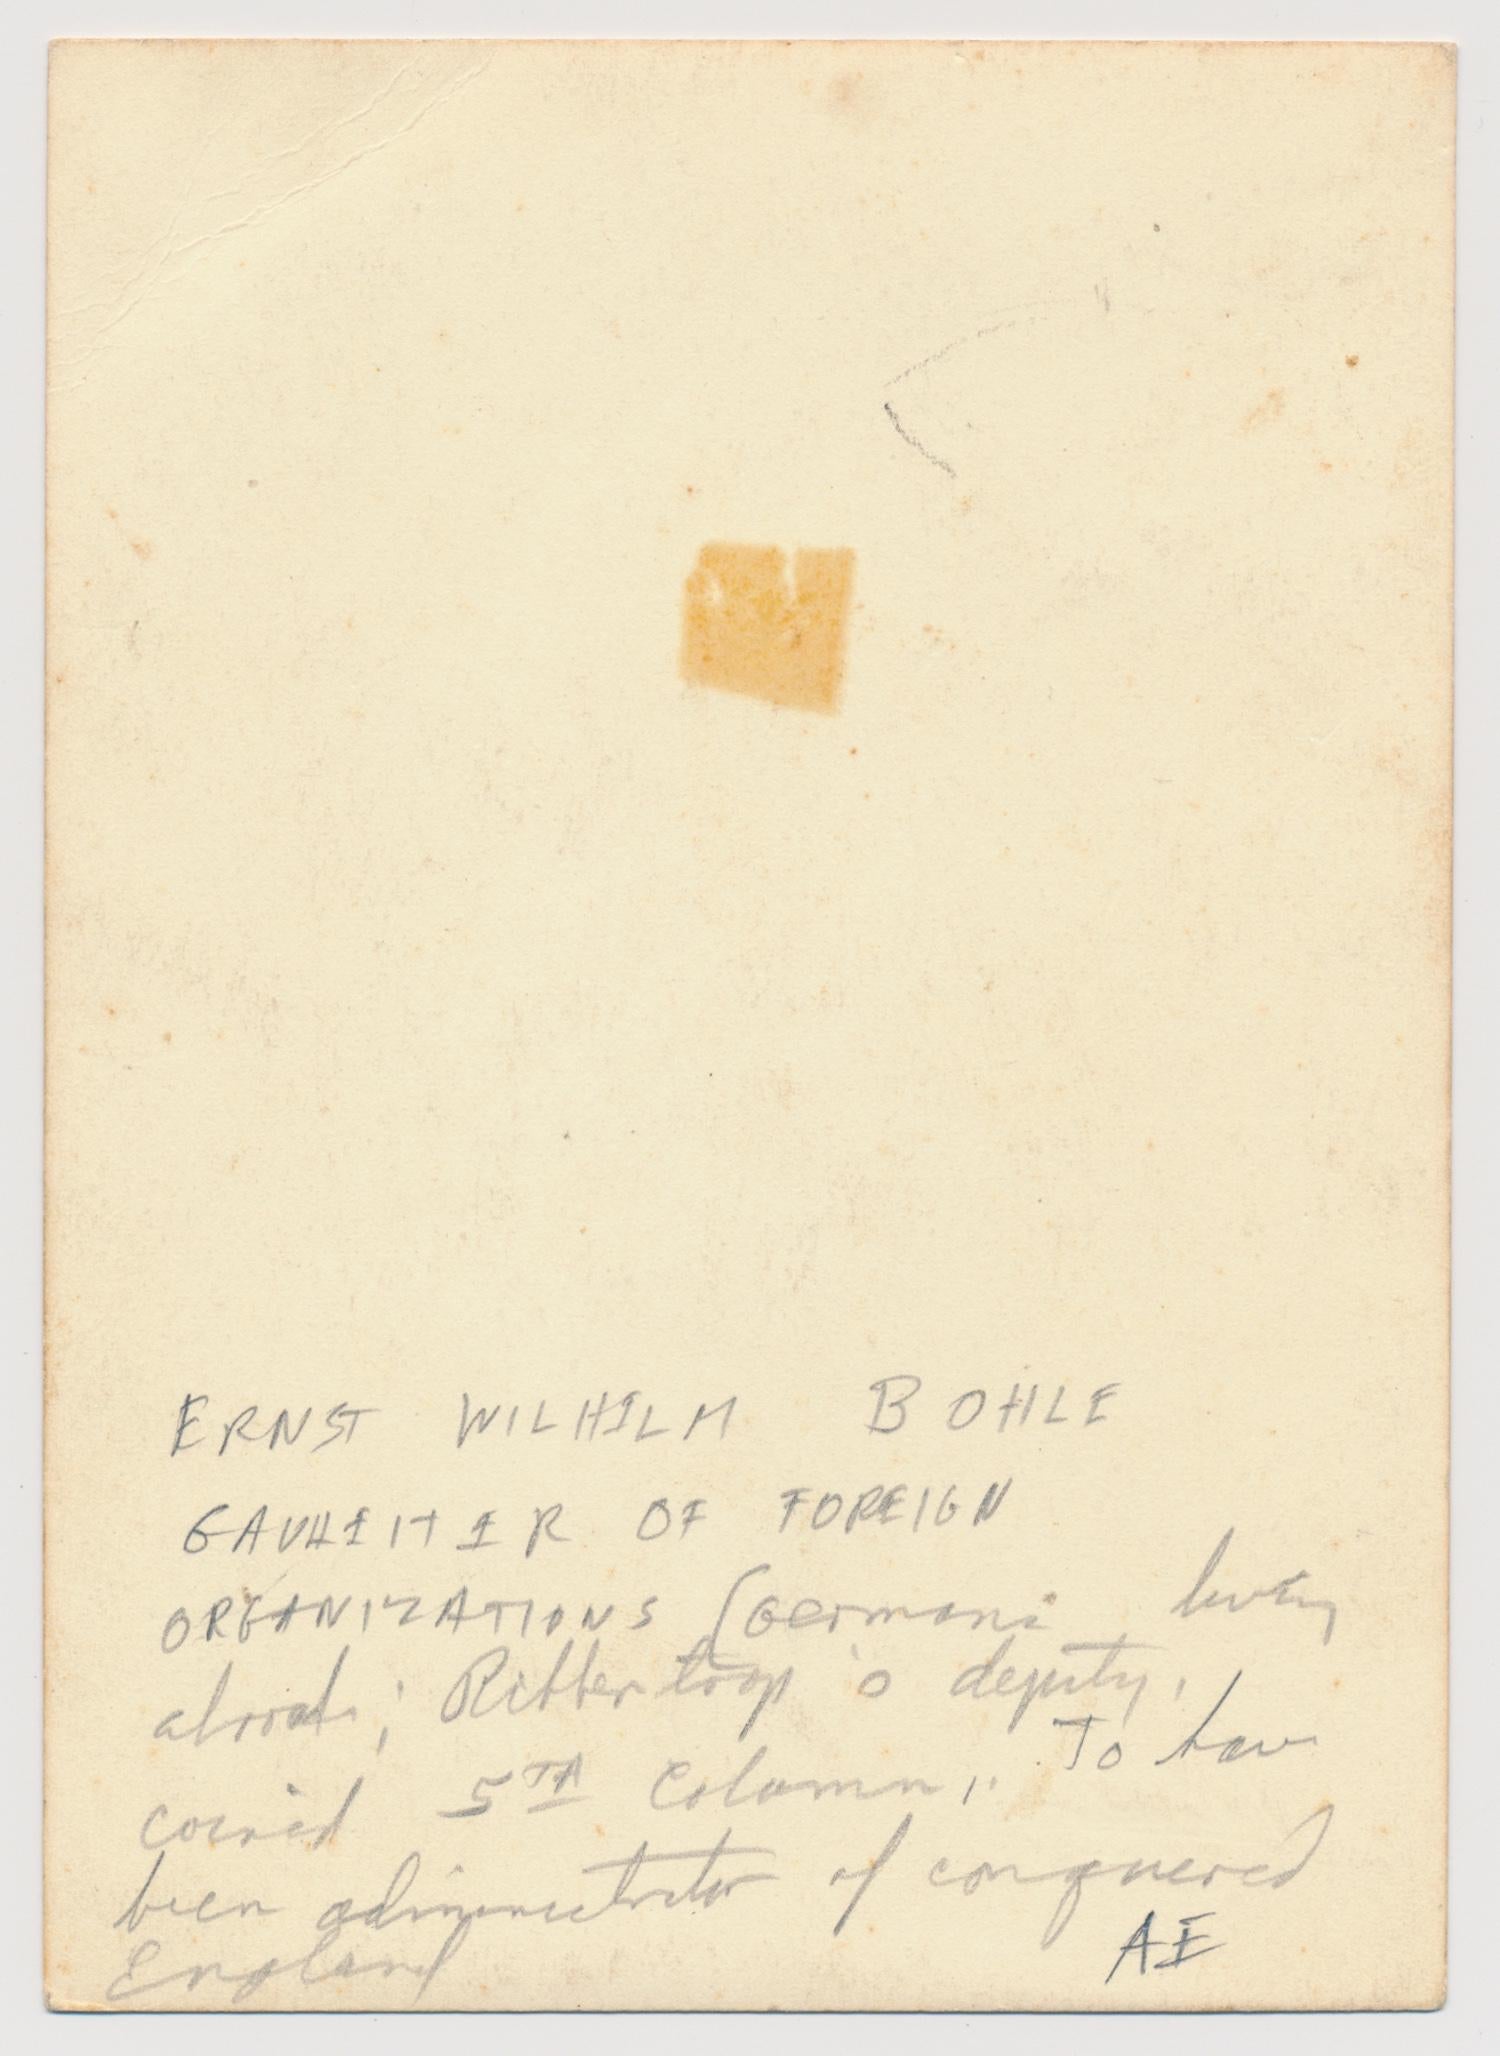 ERNST WILHELM BOHLE
GAULEITER OF FOREIGN
ORGANIZATIONS (Germans living
abroad; Ribbentrop's deputy.
coined 5TH Column,. To have
been administrator of conquered
England
AE